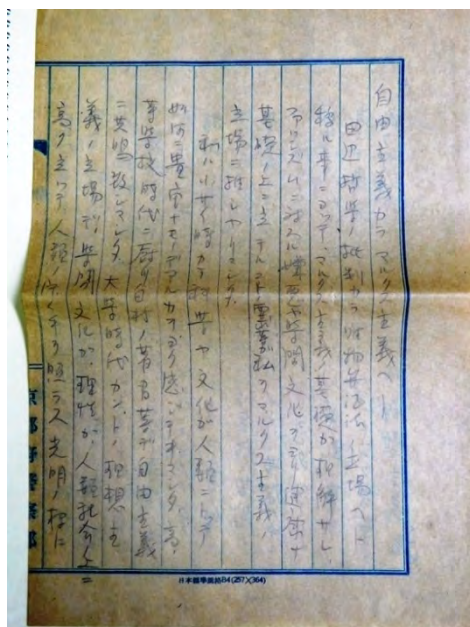 自由主義カラマルクス主義ヘ―
田辺哲学ノ批判カラ唯物弁証法ノ立場ヘト
移ル事ニヨッテ、マルクス主義ノ真髄ガ理解サレ、
ニ対スル憎悪ヤ学問文化ヲヨリ健全ナ
基礎ノ上ニ立テルト云フ事ガ私ヲマルクス主義ノ
立場ニ推シヤリマシタ。
私ハ小サイ時カラ科学ヤ文化ガ人類ニトッテ
如何ニ貴重ナモノデアルカヲヨク感ジテヰマシタガ、高
等学校時代ニ厨川白村ノ著書等デ自由主義
ニ共鳴致シマシタ。大学時代カントノ理想主
義ノ立場カラ学問文化ガ、理性ガ人類社会ノ上ニ
高ク立ッテ人類ノ行ク手ヲ照ラス光明ノ様ニ
京都
日本標準規格B4(257×364)